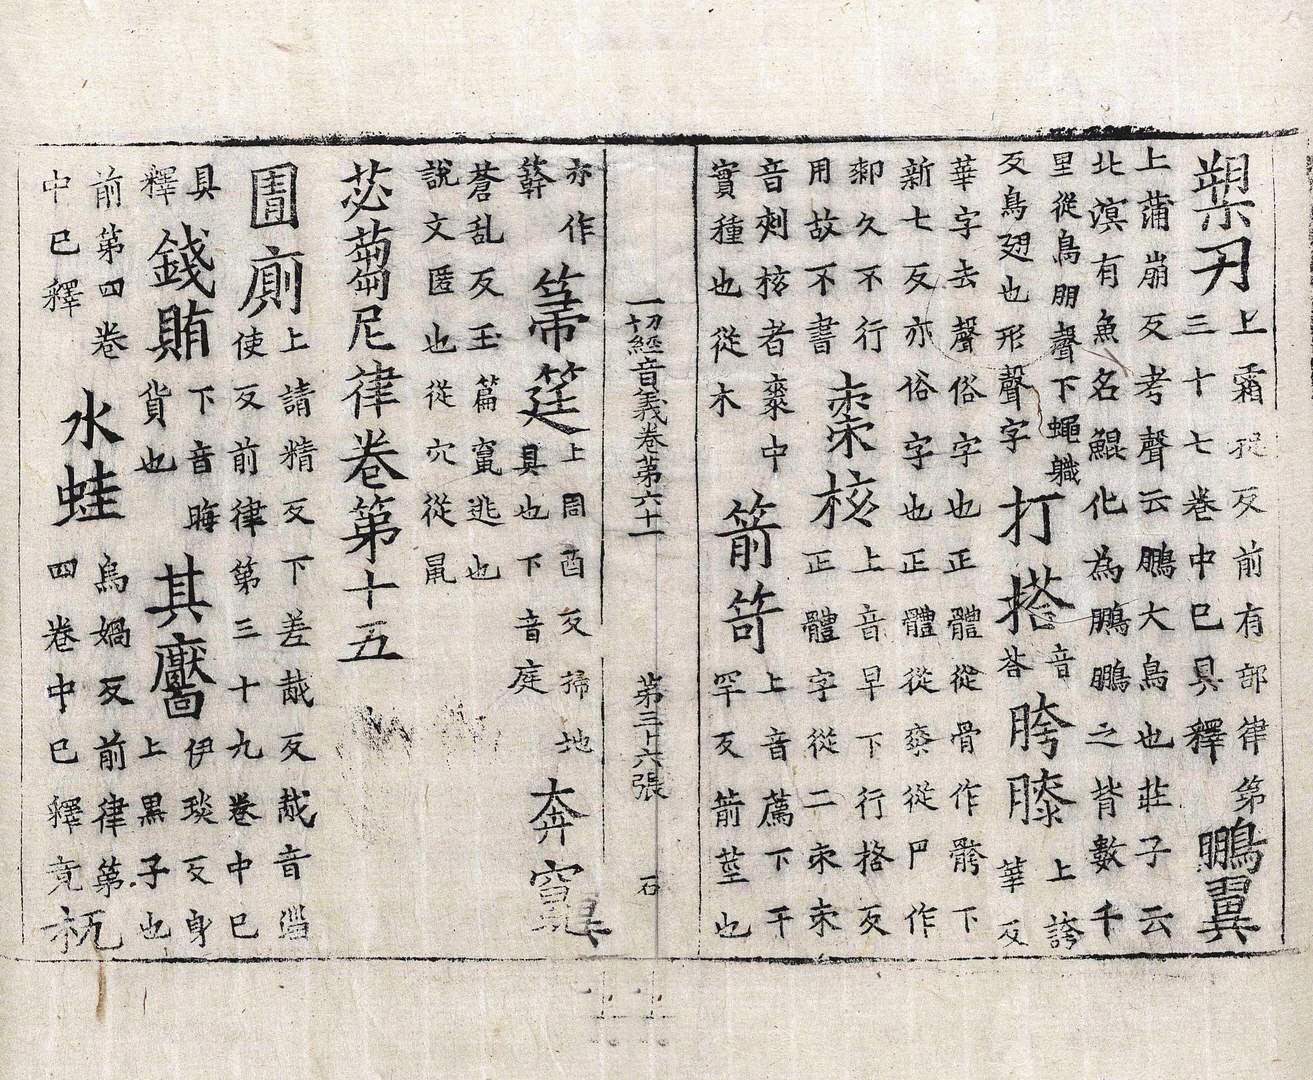 槊刃上霜捉反前有部律第
三十七卷中已具釋鵬翼
上蒲崩反考聲云鵬大鳥也莊子云
北溟有魚名鯤化為鵬鵬之背數千
里從鳥朋聲下蠅軄
反鳥翅也形聲字打搭音荅胯膝上誇華反
華字去聲俗字也正體從骨作骻下
新七反亦俗字也正體從桼從卩作
厀久不行
用故不書棗核上音早下行格反
正體字從二朿朿
音刺核者棗中
實種也從木箭笴上音薦下干
罕反箭莖也
一切經音義卷第六十一 第三十六張 石
亦作
簳箒筳上周酉反掃地
具也下音庭奔竄
蒼乱反玉篇竄逃也
說文匿也從穴從鼠
苾蒭尼律卷第十五
圊廁上請精反下差胾反胾音淄
使反前律第三十九卷中已
具
釋錢賄下音晦
貨也其黶伊琰反身
上黑子也
前第四卷
中已釋水蛙烏媧反前律第
四卷中已釋竟杌